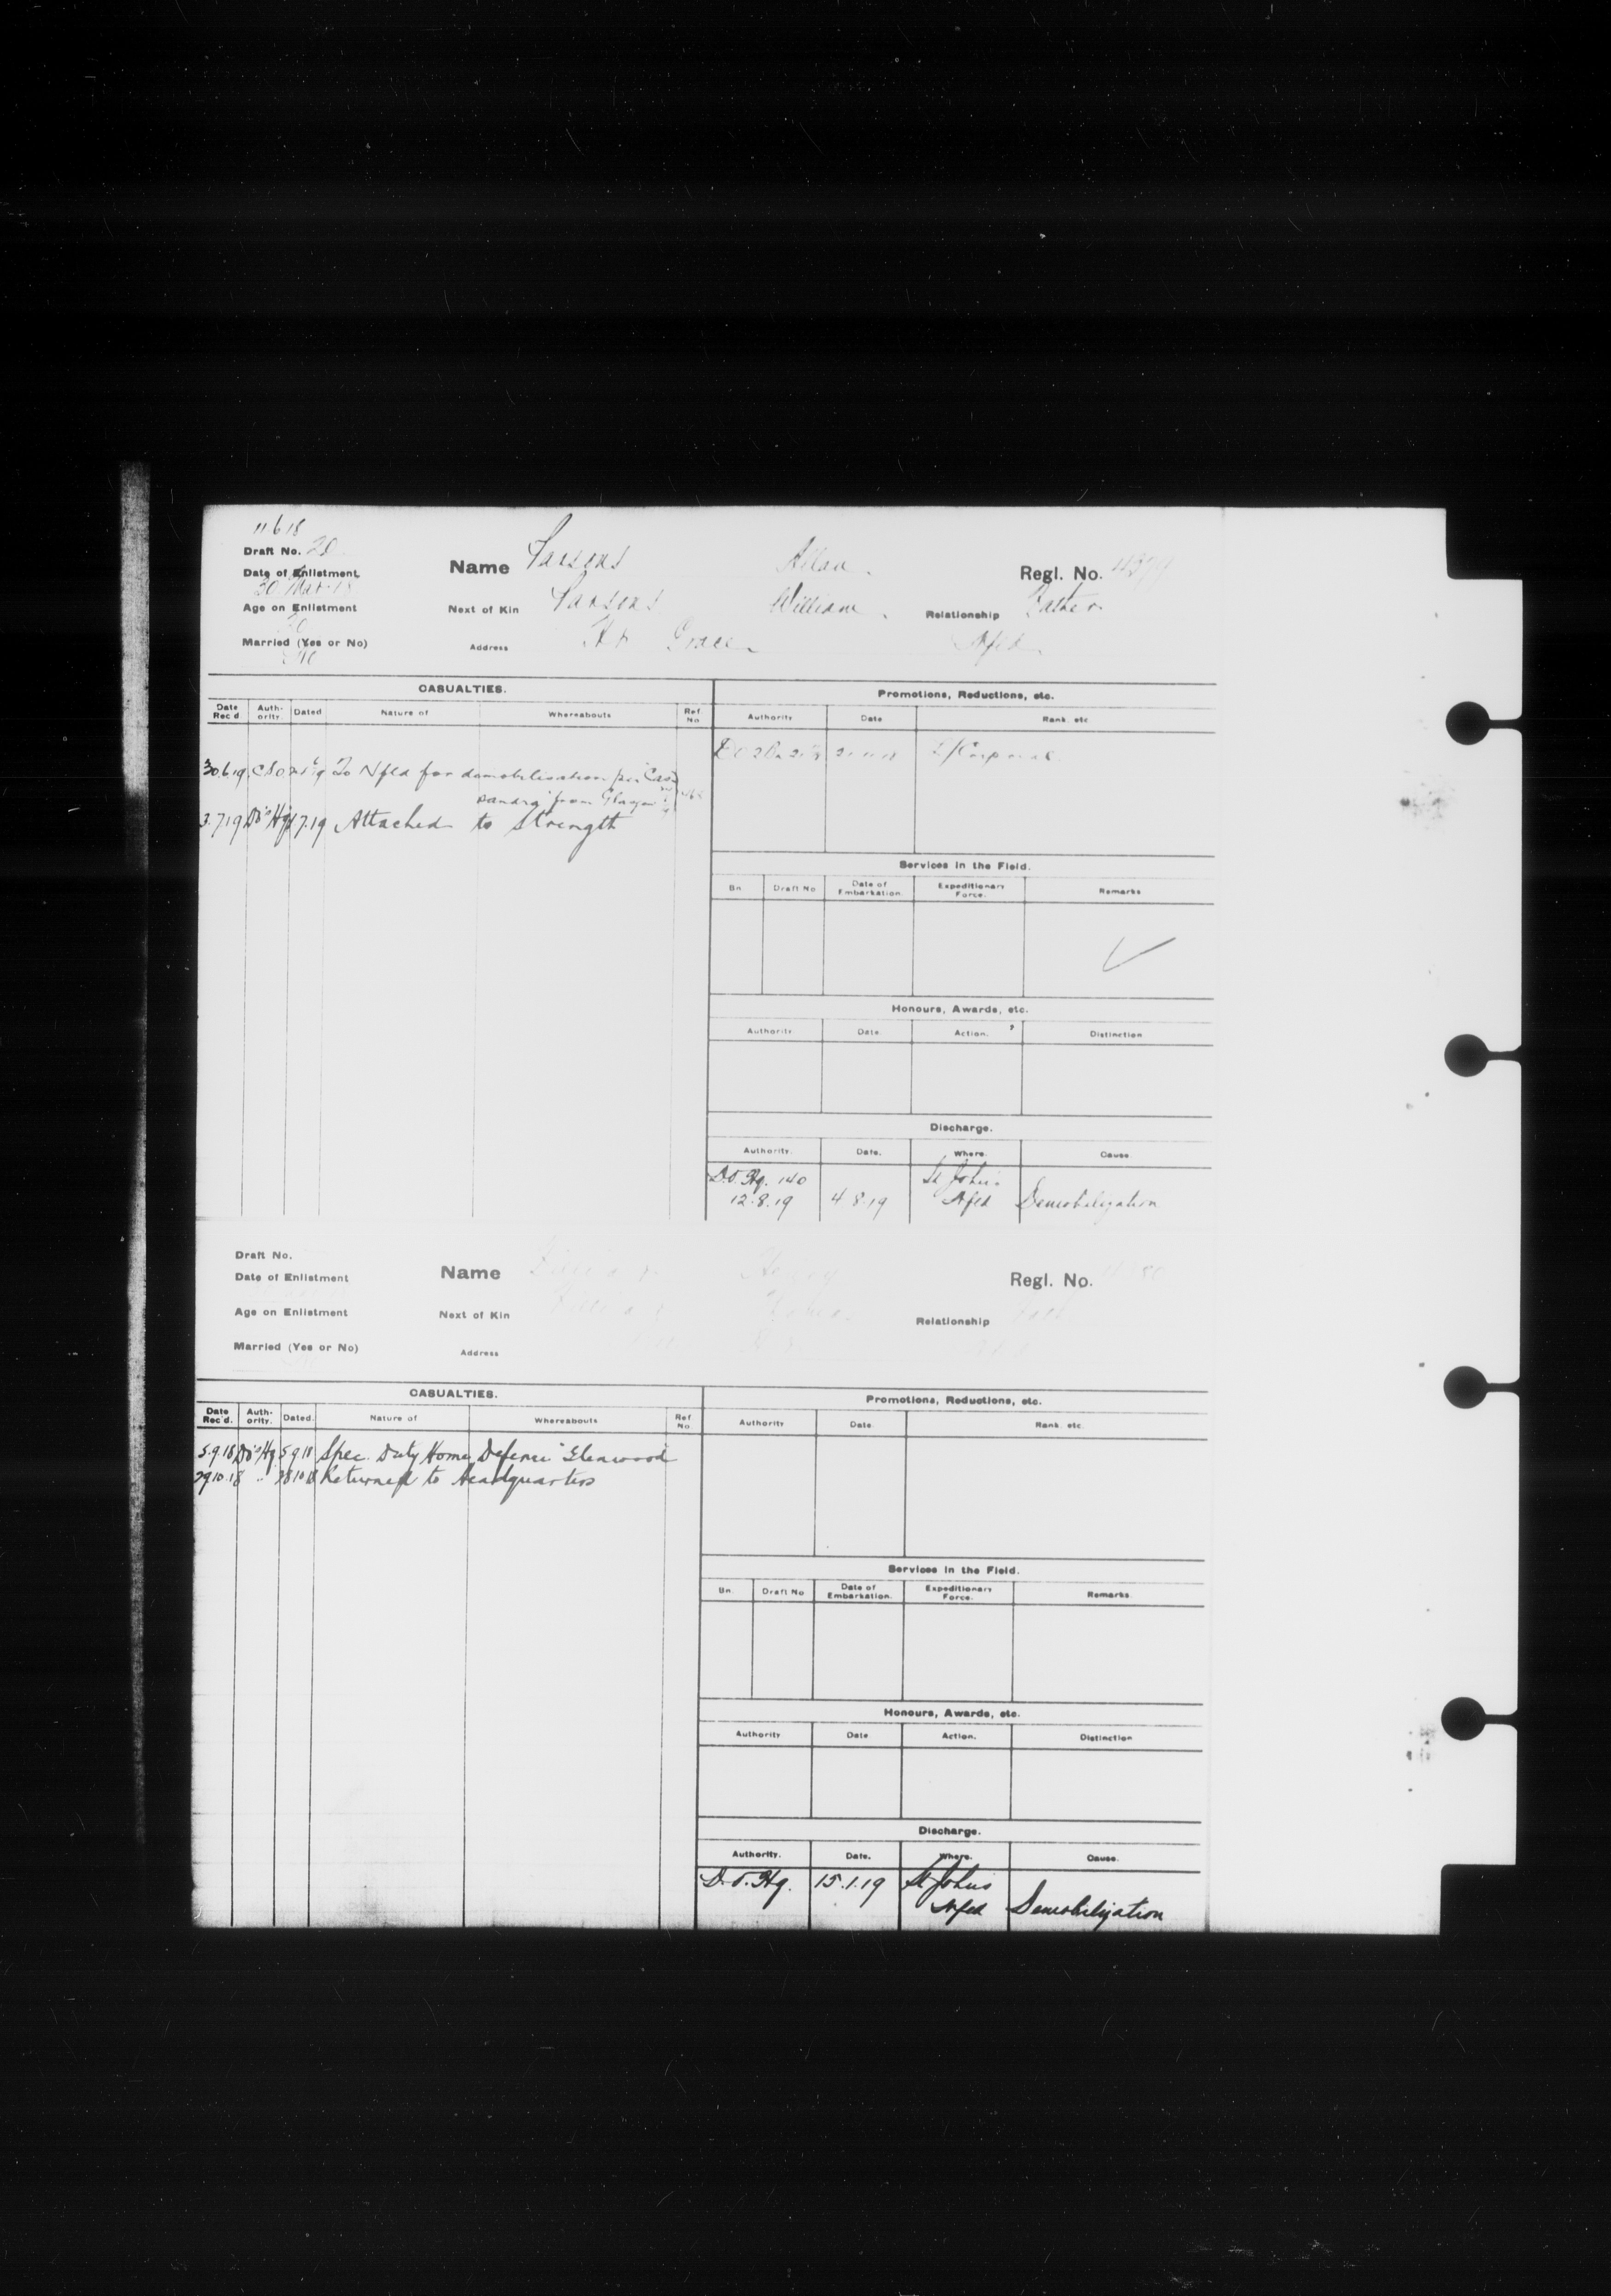 11 6 18
Draft No. 20
Name Parsons Allan. Regl. No. 4379
Date of Enlistment
30 Mar. 18
Age on Enlistment Next of Kin Parsons William. Relationship Father.
20
Married (Yes or No) Address Hr Grace Nfld.
No
CASUALTIES. Promotions, Reductions, etc.
Date Rec'd Authority. Dated Nature of Whereabouts Ref No Authority Date Rank. etc
L/Corporal
30.6.19 To Nfld for demobilisation per "Cas
sandra" from Glasgow
3.7.19 D.O Hq 1.7.19 Attached to Strength
Services in the Field.
Bn. Draft No Date of Embarkation. Expeditionary Force. Remarks
Honours, Awards, etc.
Authority Date. Action. Distinction
Discharge.
Authority. Date. Where. Cause.
D.O. Hq. 140 St John's
12.8.19 4.8.19 Nfld Demobilization
Draft No.
Date of Enlistment Name Regl. No.
Age on Enlistment Next of Kin Relationship
Married (Yes or No) Address
CASUALTIES. Promotions, Reductions, etc.
Date Rec'd. Authority. Dated. Nature of Whereabouts Ref No. Authority Date. Rank. etc.
5.9.18 D.O Hq 5 9 18 Spec. Duty Home Defence "Glenwood"
29.10.18 " 28 10 18 Returned to Headquarters
Services in the Field.
Bn. Draft No Date of Embarkation. Expeditionary Force. Remarks.
Honours, Awards, etc.
Authority Date Action. Distinction
Discharge.
Authority. Date. Where. Cause.
D.O. Hq. 15.1.19 St John's
Nfld Demobilization